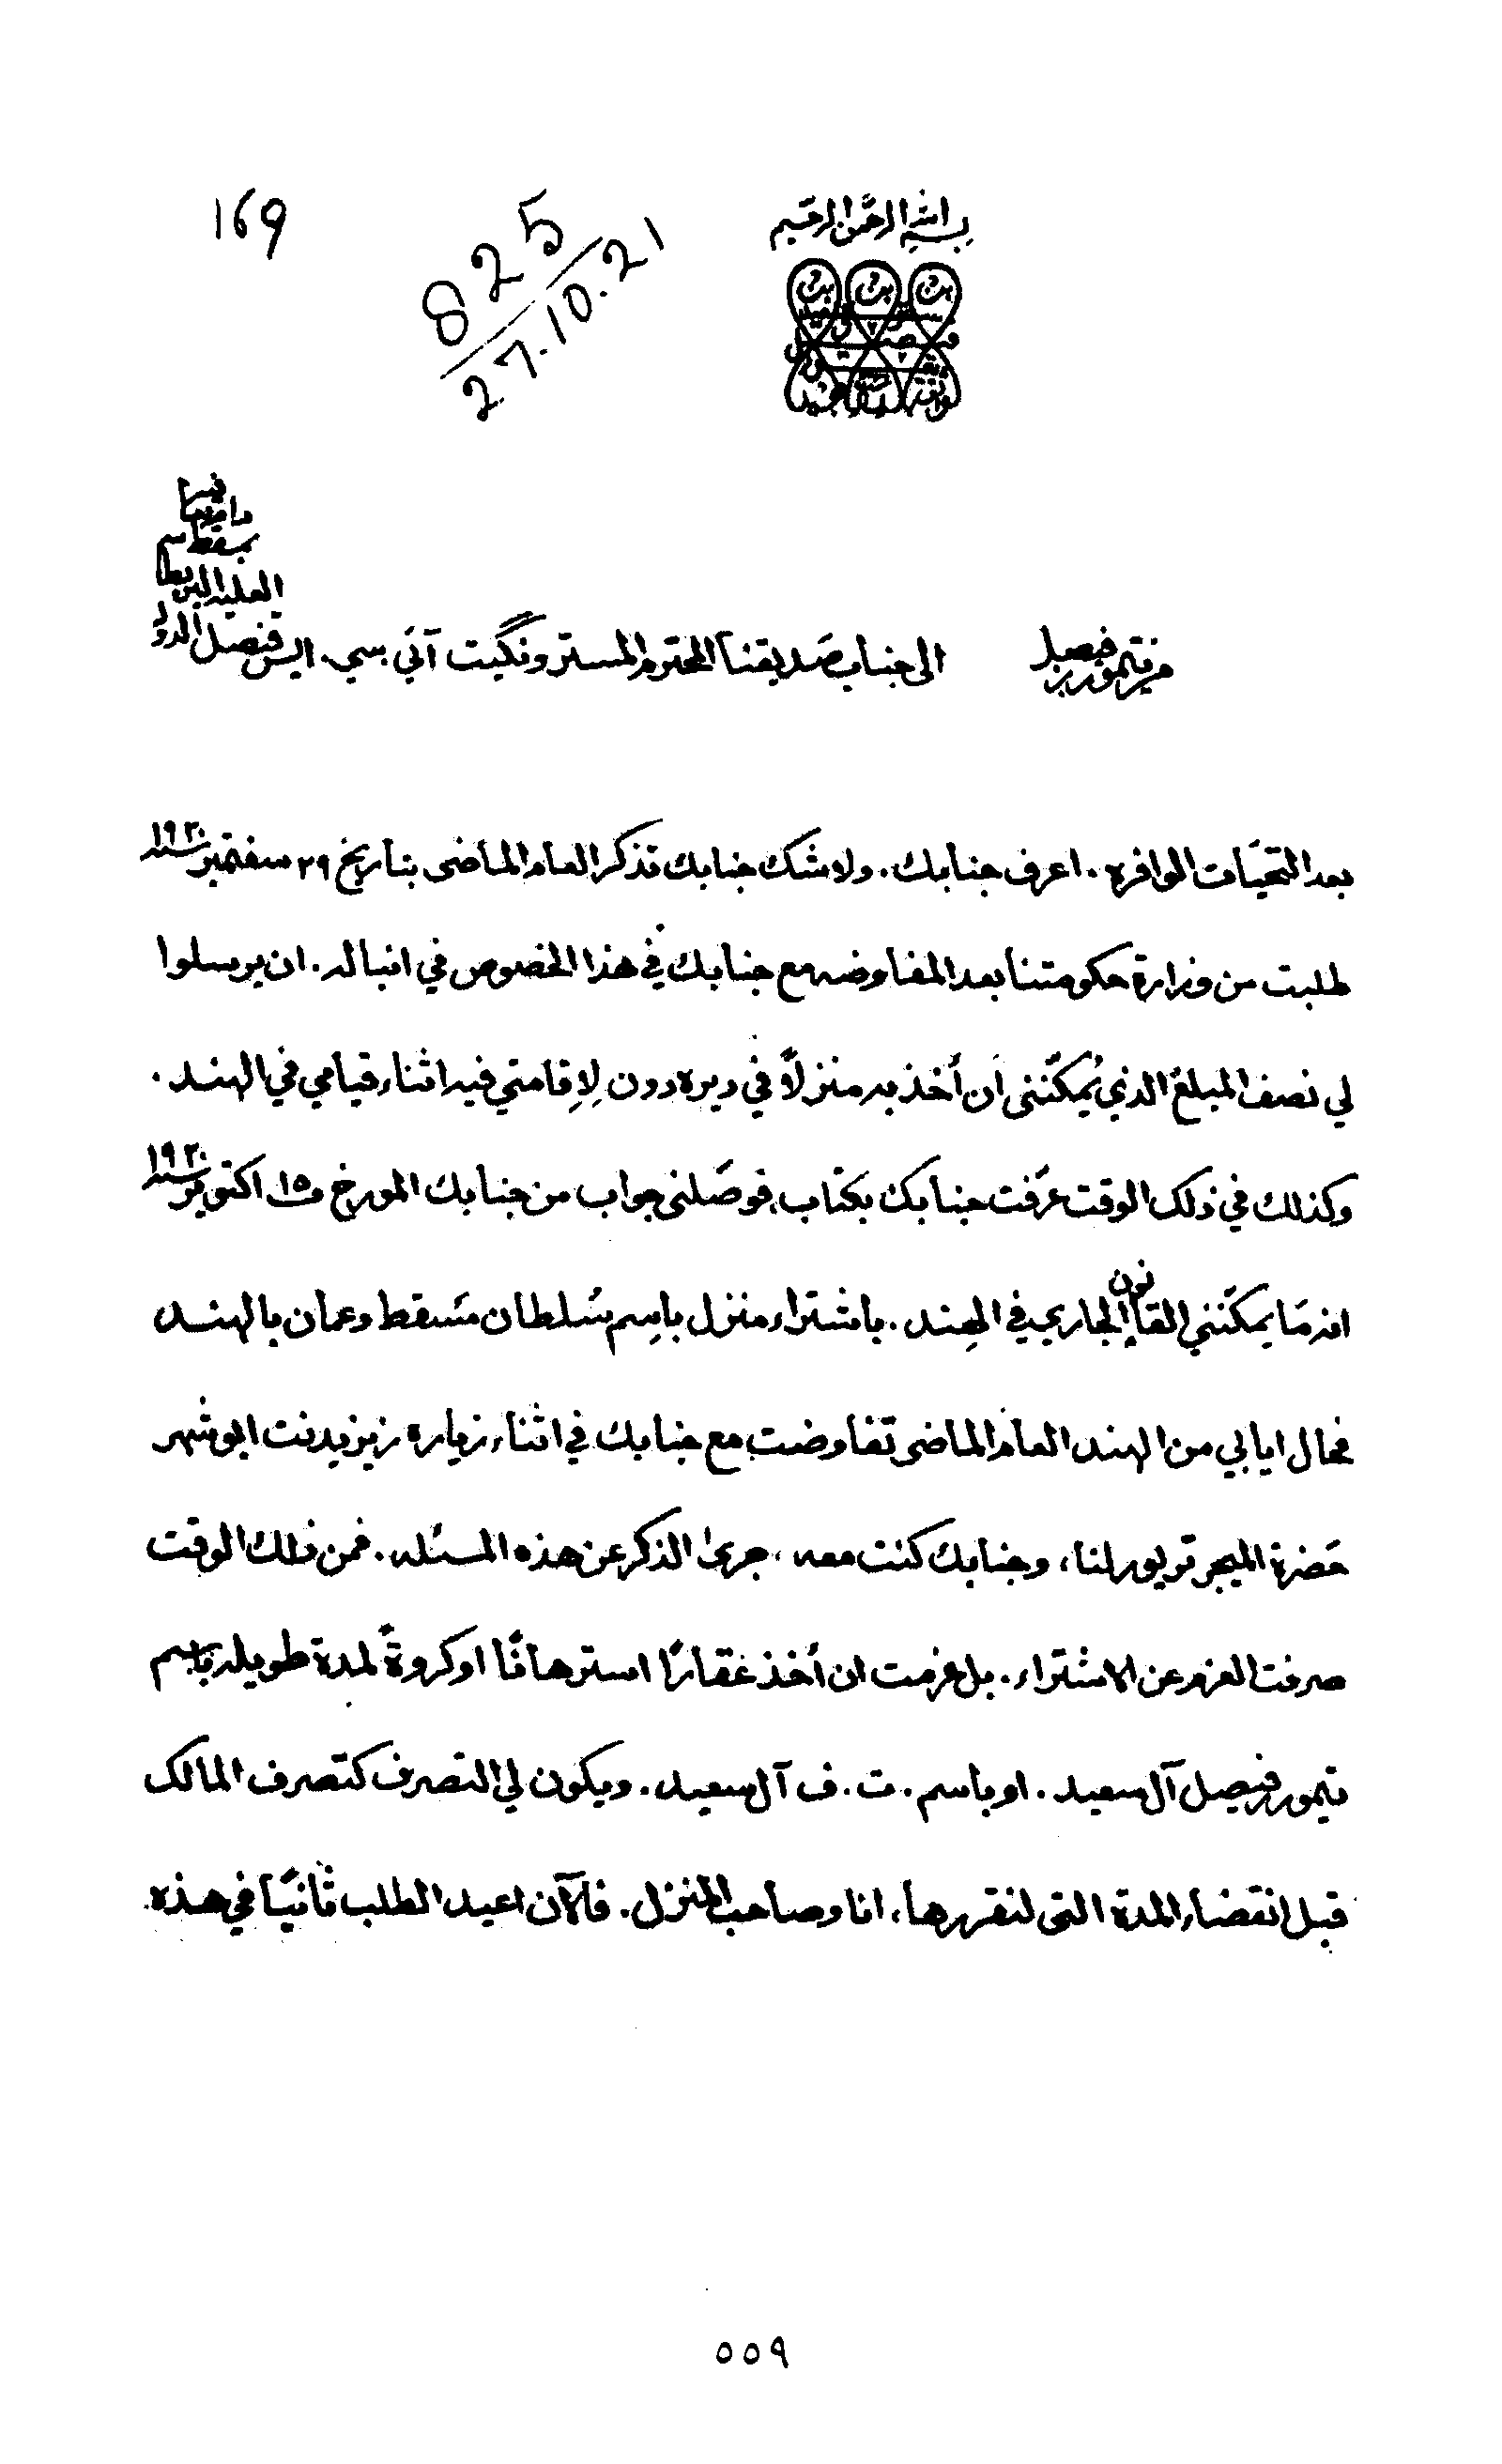 169
825
27.10.21
بسم الله الرحمن الرحيم
من تيمور بن فيصل الى جناب صديقنا المحترم المستر ونگيت آئي. سي. ايس قنصل الدولة
العلية البريطانية بمسقط
بعد التحيّات الوافره. اعرف جنابك. ولا شك جنابك تذكر العام الماضى بتاريخ ٢٩ سفتمبر سنه ١٩٢٠
طلبت من وزارة حكومتنا بعد المفاوضه مع جنابك في هذا الخصوص في انباله. ان يرسلوا
لي نصف المبلغ الذي يُمكنّنى ان أخذ به منزلاً في ديره دون لإقامتي فيه اثناء قيامي في الهند.
وكذلك في ذلك الوقت عرّفت جنابك بكتاب، فوصَلنى جواب من جنابك المورخ ١٥ اكتوبر سنه ١٩٢٠
انه مَا يمكنّني القانون الجاري في الهِند. باشتراء منزل باسِم سُلطان مَسقط وعمان بالهند
فحال ايابي من الهند العام الماضى تفاوضت مع جنابك في اثناء زياره رزيدنت ابوشهر
حَضرة الميجر تريور لنا، وجنابك كنت معه، جرىٰ الذكر عن هذه المسئله. فمن ذلك الوقت
صرفت العزم عن الاشتراء. بل عزمت ان أخذ عَقارًا استرهانًا او كروةً لمدة طويله باسم
تيمور فيصل آل سعيد. او باسم. ت. ف آل سعيد. ويكون لي التصرف كتصرف المالك
قبل انقضاء المدة التى لنقررها، انا وصاحب المنزل. فالآن اعيد الطلب ثانيًا في هذه
٥٥٩